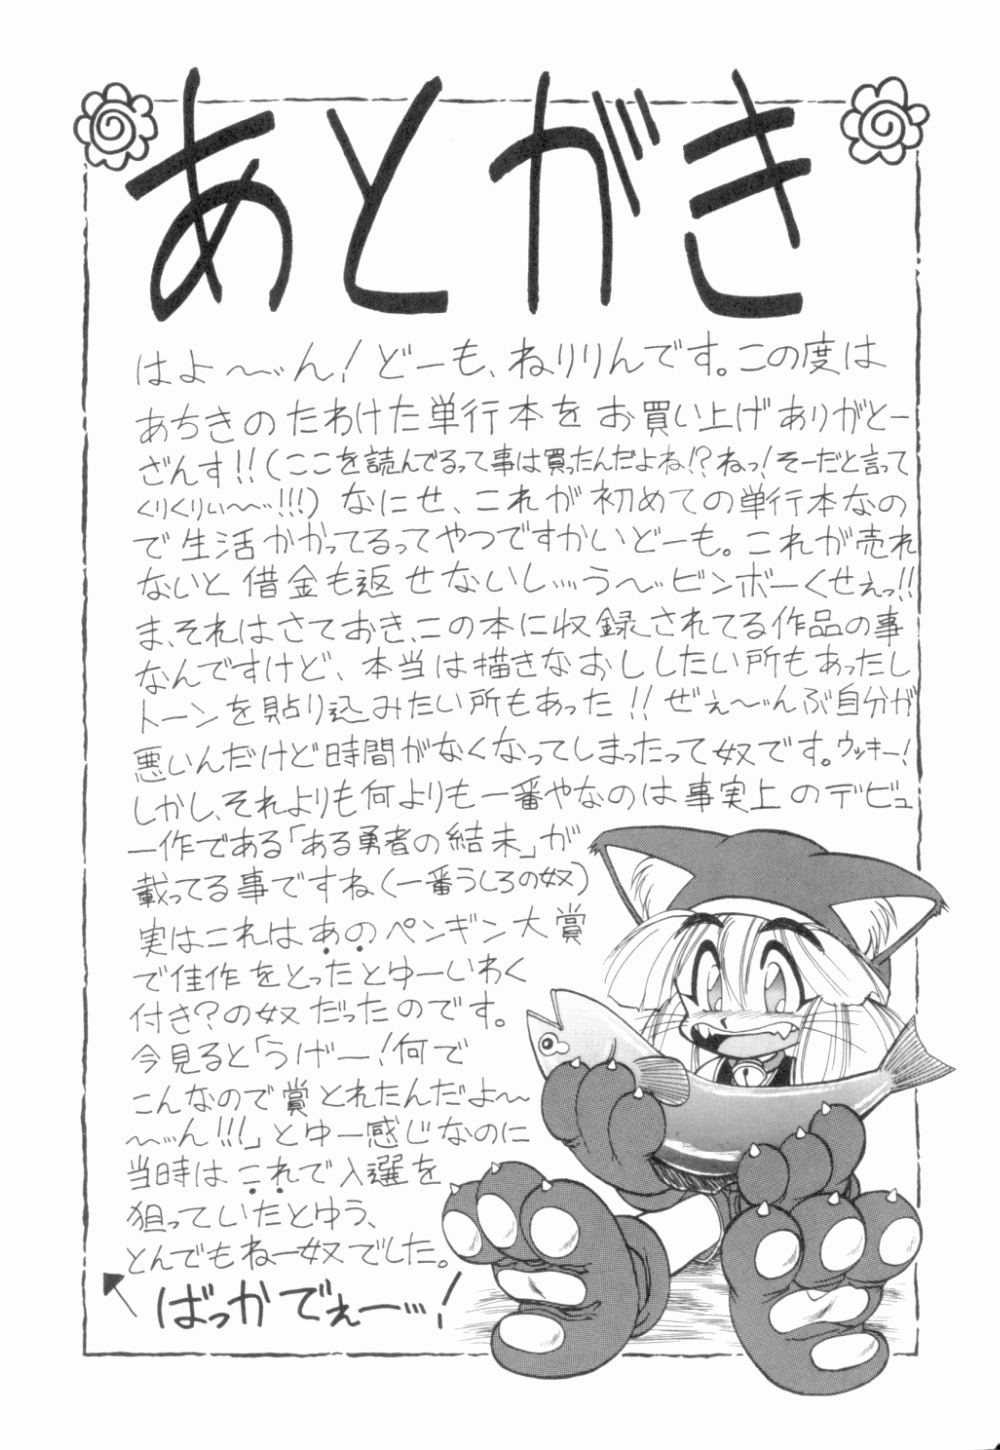 あとがき
はよ〜〜ん!どーも、ねりりんです。この度は
あちきのたわけた単行本をお買い上げありがとー
ざんす!!(ここを読んでるって事は買ったんだよね!?ねっ!そーだと言って
くりくりぃ〜〜!!!)なにせ、これが初めての単行本なの
で生活かかってるってやつですかいどーも。これが売れ
ないと借金も返せないし…う〜〜ビンボーくせぇっ!!
ま、それはさておき、この本に収録されてる作品の事
なんですけど、本当は描きなおししたい所もあったし
トーンを貼り込みたい所もあった!!ぜぇ〜〜んぶ自分が
悪いんだけど時間がなくなってしまったって奴です。ウッキー!
しかし、それよりも何よりも一番やなのは事実上のデビュ
ー作である「ある勇者の結末」が
載ってる事ですね(一番うしろの奴)
実はこれはあのペンギン大賞
で佳作をとったとゆーいわく
付き?の奴だったのです。
今見ると「うげー!何で
こんなので賞とれたんだよ〜
〜〜ん!!!」とゆー感じなのに
当時はこれで入選を
狙っていたとゆう、
とんでもねー奴でした。
ばっかでぇー…!